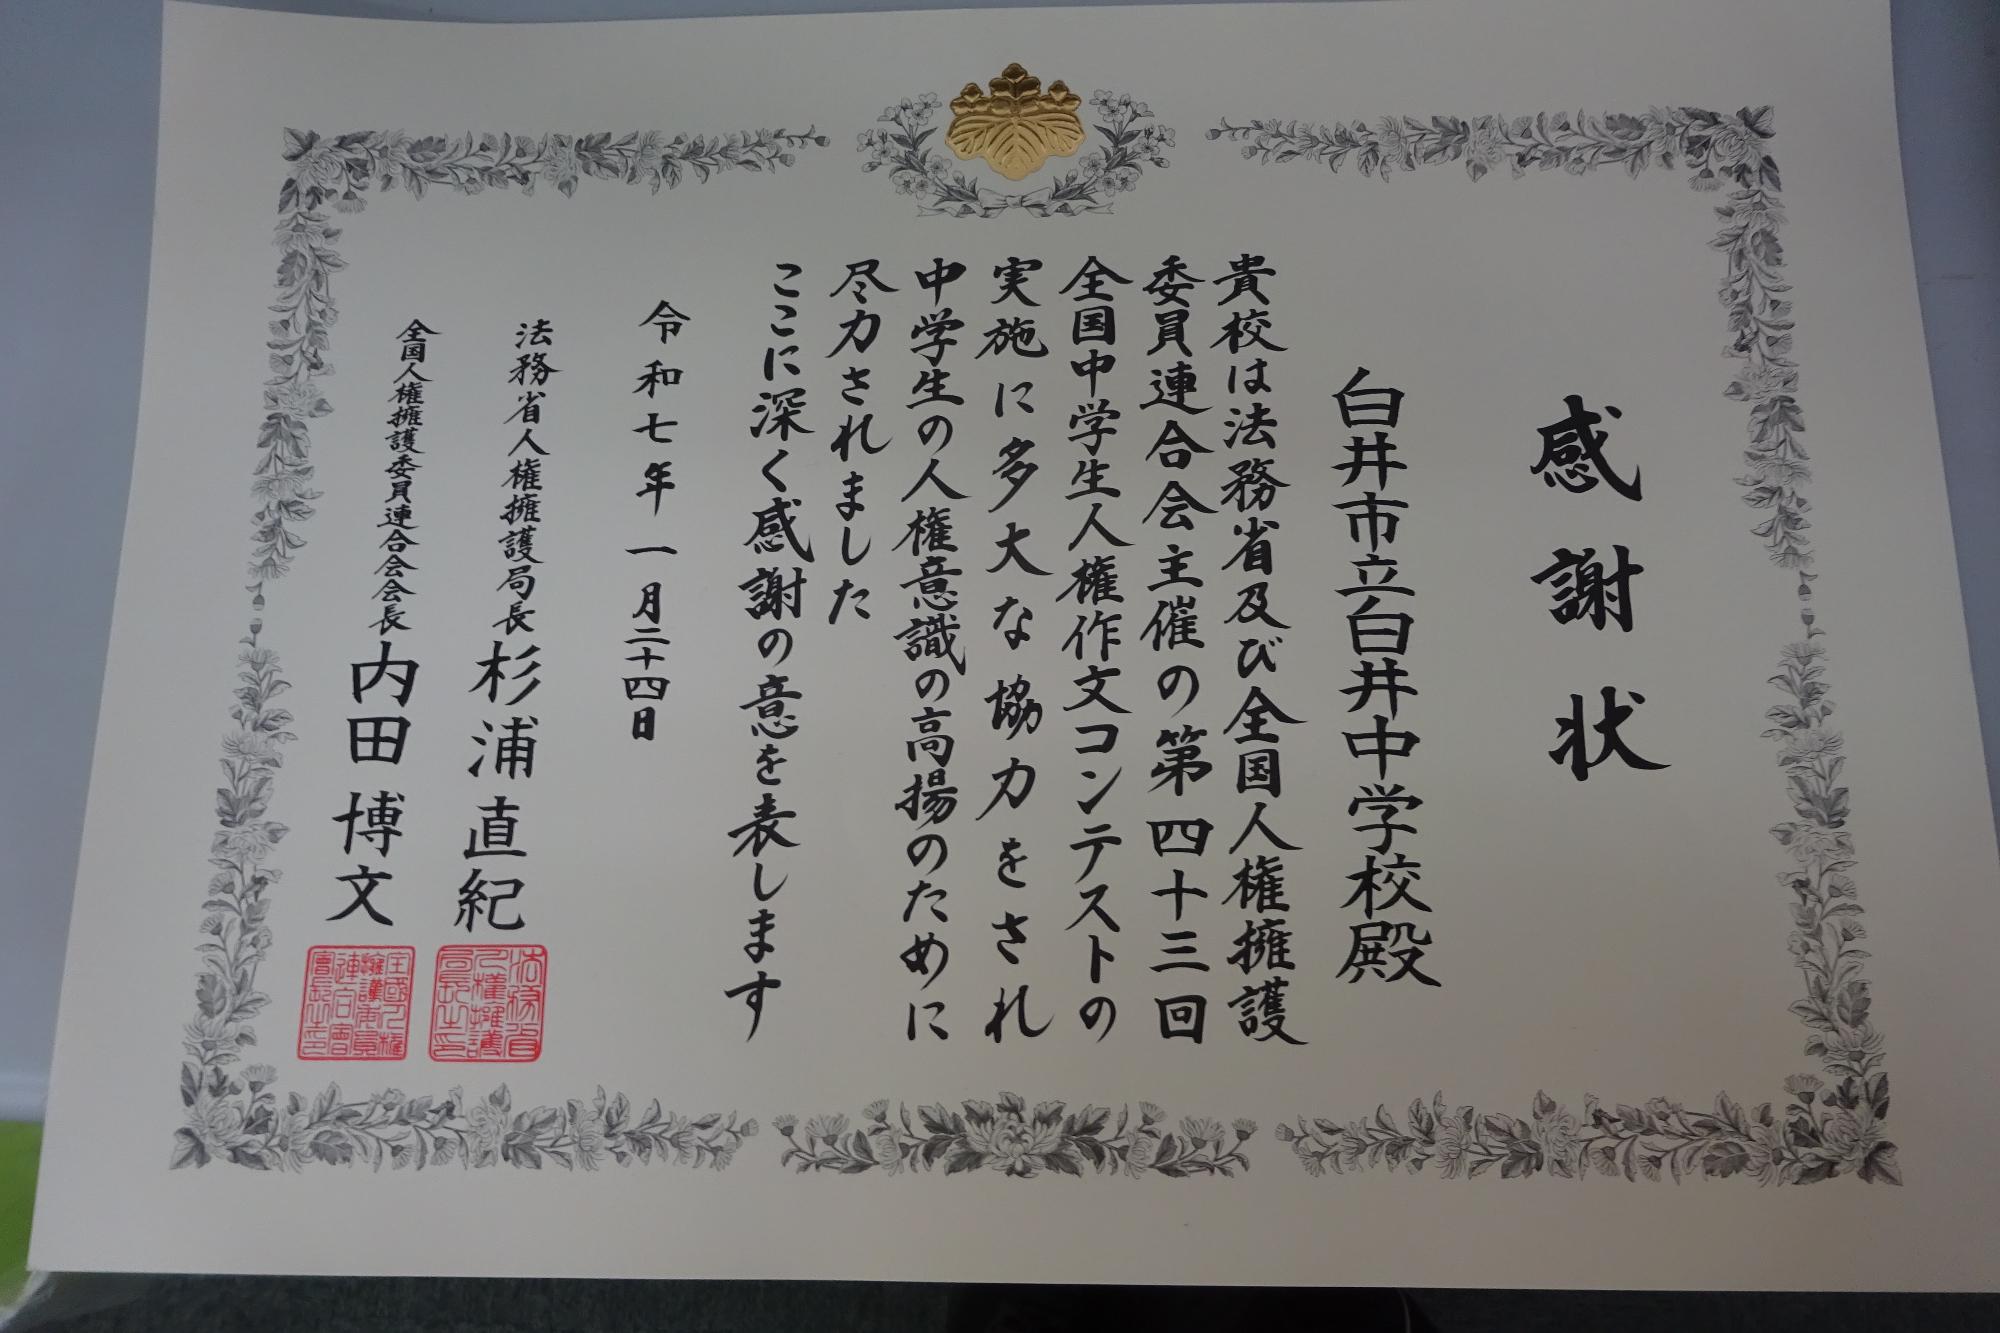 感謝状
白井市立白井中学校殿
貴校は法務省及び全国人権擁護
委員連合会主催の第四十三回
全国中学生人権作文コンテストの
実施に多大な協力をされ
中学生の人権意識の高揚のために
尽力されました
ここに深く感謝の意を表します
令和七年一月二十四日
法務省人権擁護局長 杉浦直紀
全国人権擁護委員連合会会長 内田博文
法務省人権擁護局長之印
全國人権擁護委員連合會會長之印